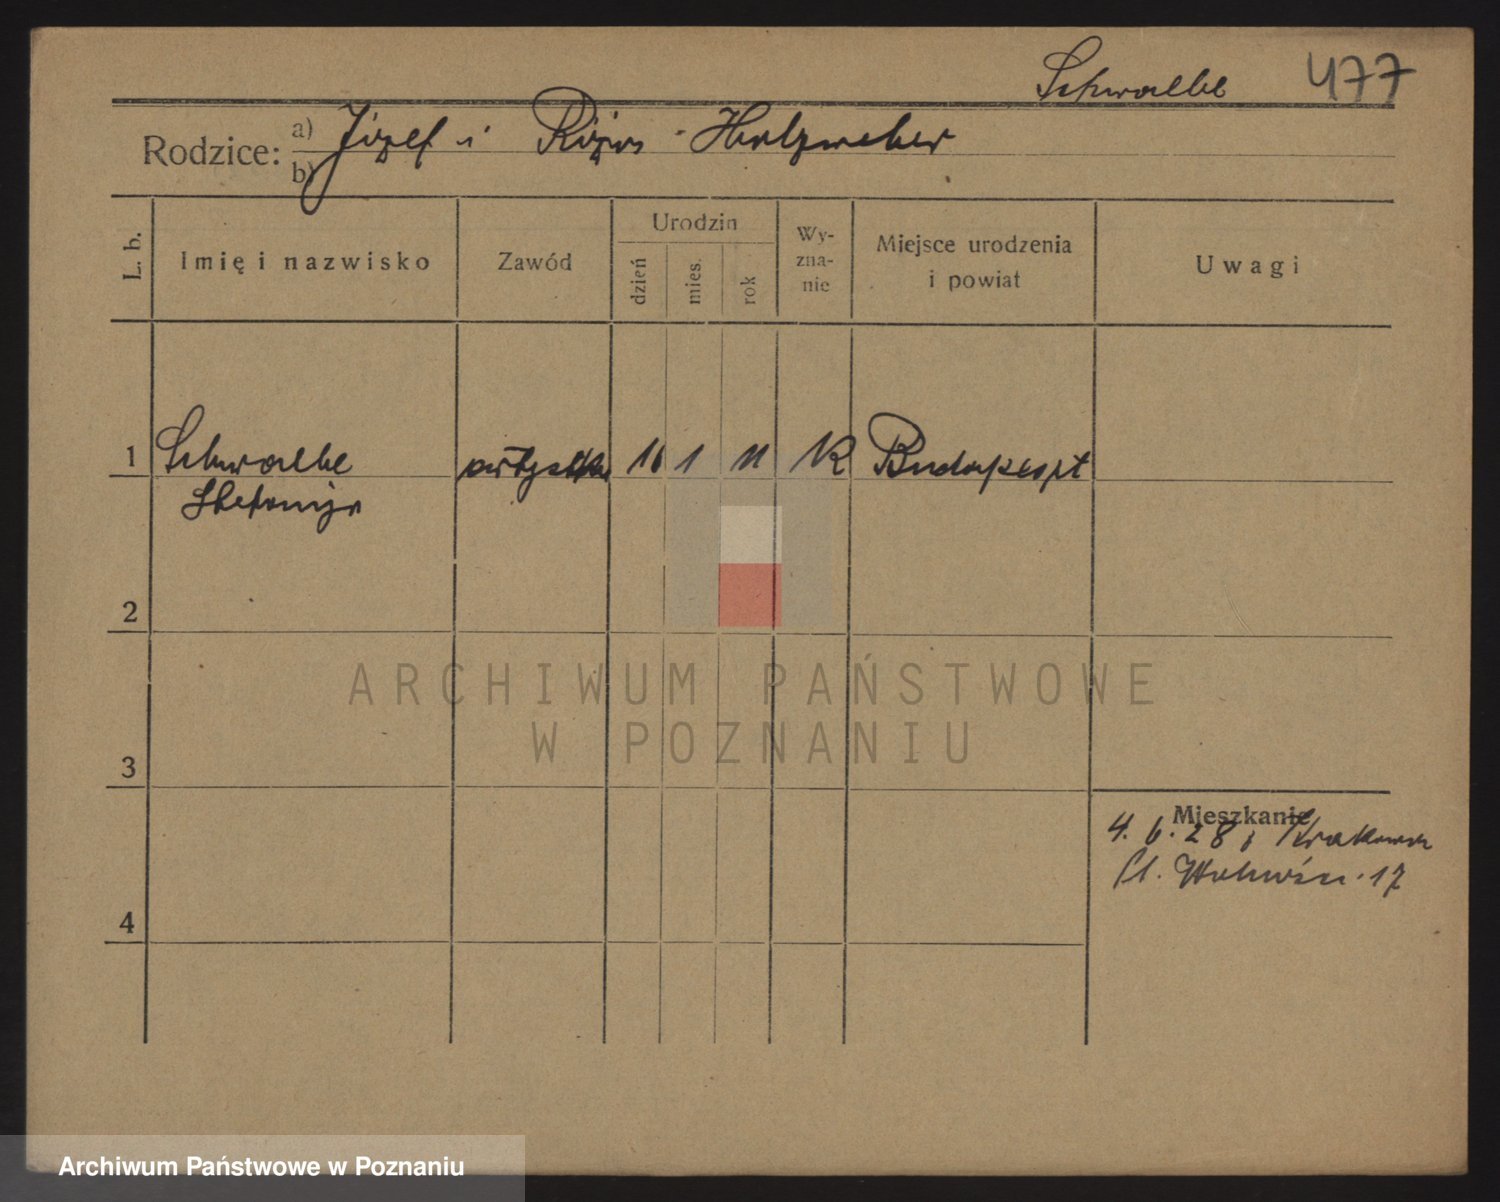 Schwalbe 477
Rodzice: a) Józef i Róża Holzweber
b)
L. b.
Imię i nazwisko
Zawód
Urodzin
dzień
mies.
rok
Wy-
zna-
nie
Miejsce urodzenia
i powiat
Uwagi
1 Schwalbe artystka 16 1 11 K Budapeszt
Stefanija
2
3
Mieszkanie
4. 6. 28 z Krakowa
Pl. Wolności 17
4
ARCHIWUM PAŃSTWOWE
W POZNANIU
Archiwum Państwowe w Poznaniu